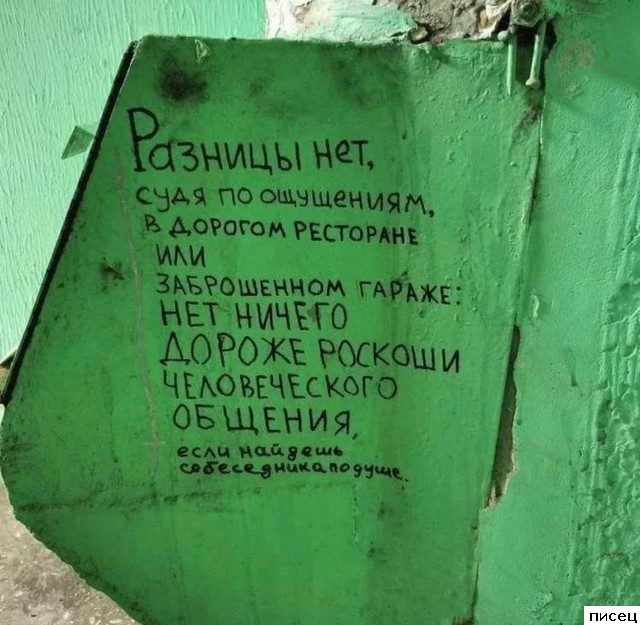 Разницы нет,
судя по ощущениям,
в дорогом ресторане
или
заброшенном гараже:
нет ничего
дороже роскоши
человеческого
общения,
если найдешь
собеседника по душе.
писец